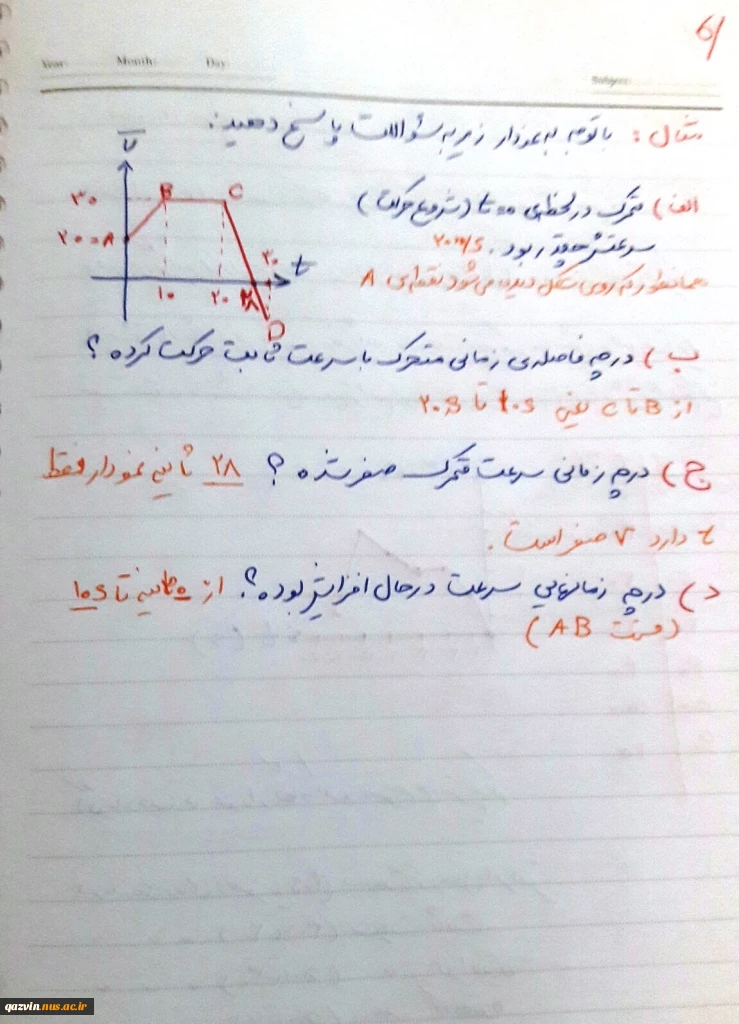 6/
Year: Month: Day:
Subject:
مثال: باتوجه به نمودار زیر به سؤالات پاسخ دهید:
الف) متحرک در لحظه‌ی t=0 (شروع حرکت)
سرعتش چقدر بود. ۲۰m/s
همانطور که روی شکل دیده می‌شود نقطه‌ی A
v
۳۰ B C
۲۰=A
۳۰ t
۱۰ ۲۰ ۲۸
D
ب) در چه فاصله‌ی زمانی متحرک با سرعت ثابت حرکت کرده؟
از B تا C یعنی ۱۰s تا ۲۰s
ج) در چه زمانی سرعت متحرک صفر شده؟ ۲۸ ثانیه نمودار فقط
t دارد v صفر است.
د) در چه زمانهایی سرعت در حال افزایش بوده؟ از ۰ ثانیه تا ۱۰s
(قسمت AB)
qazvin.nus.ac.ir